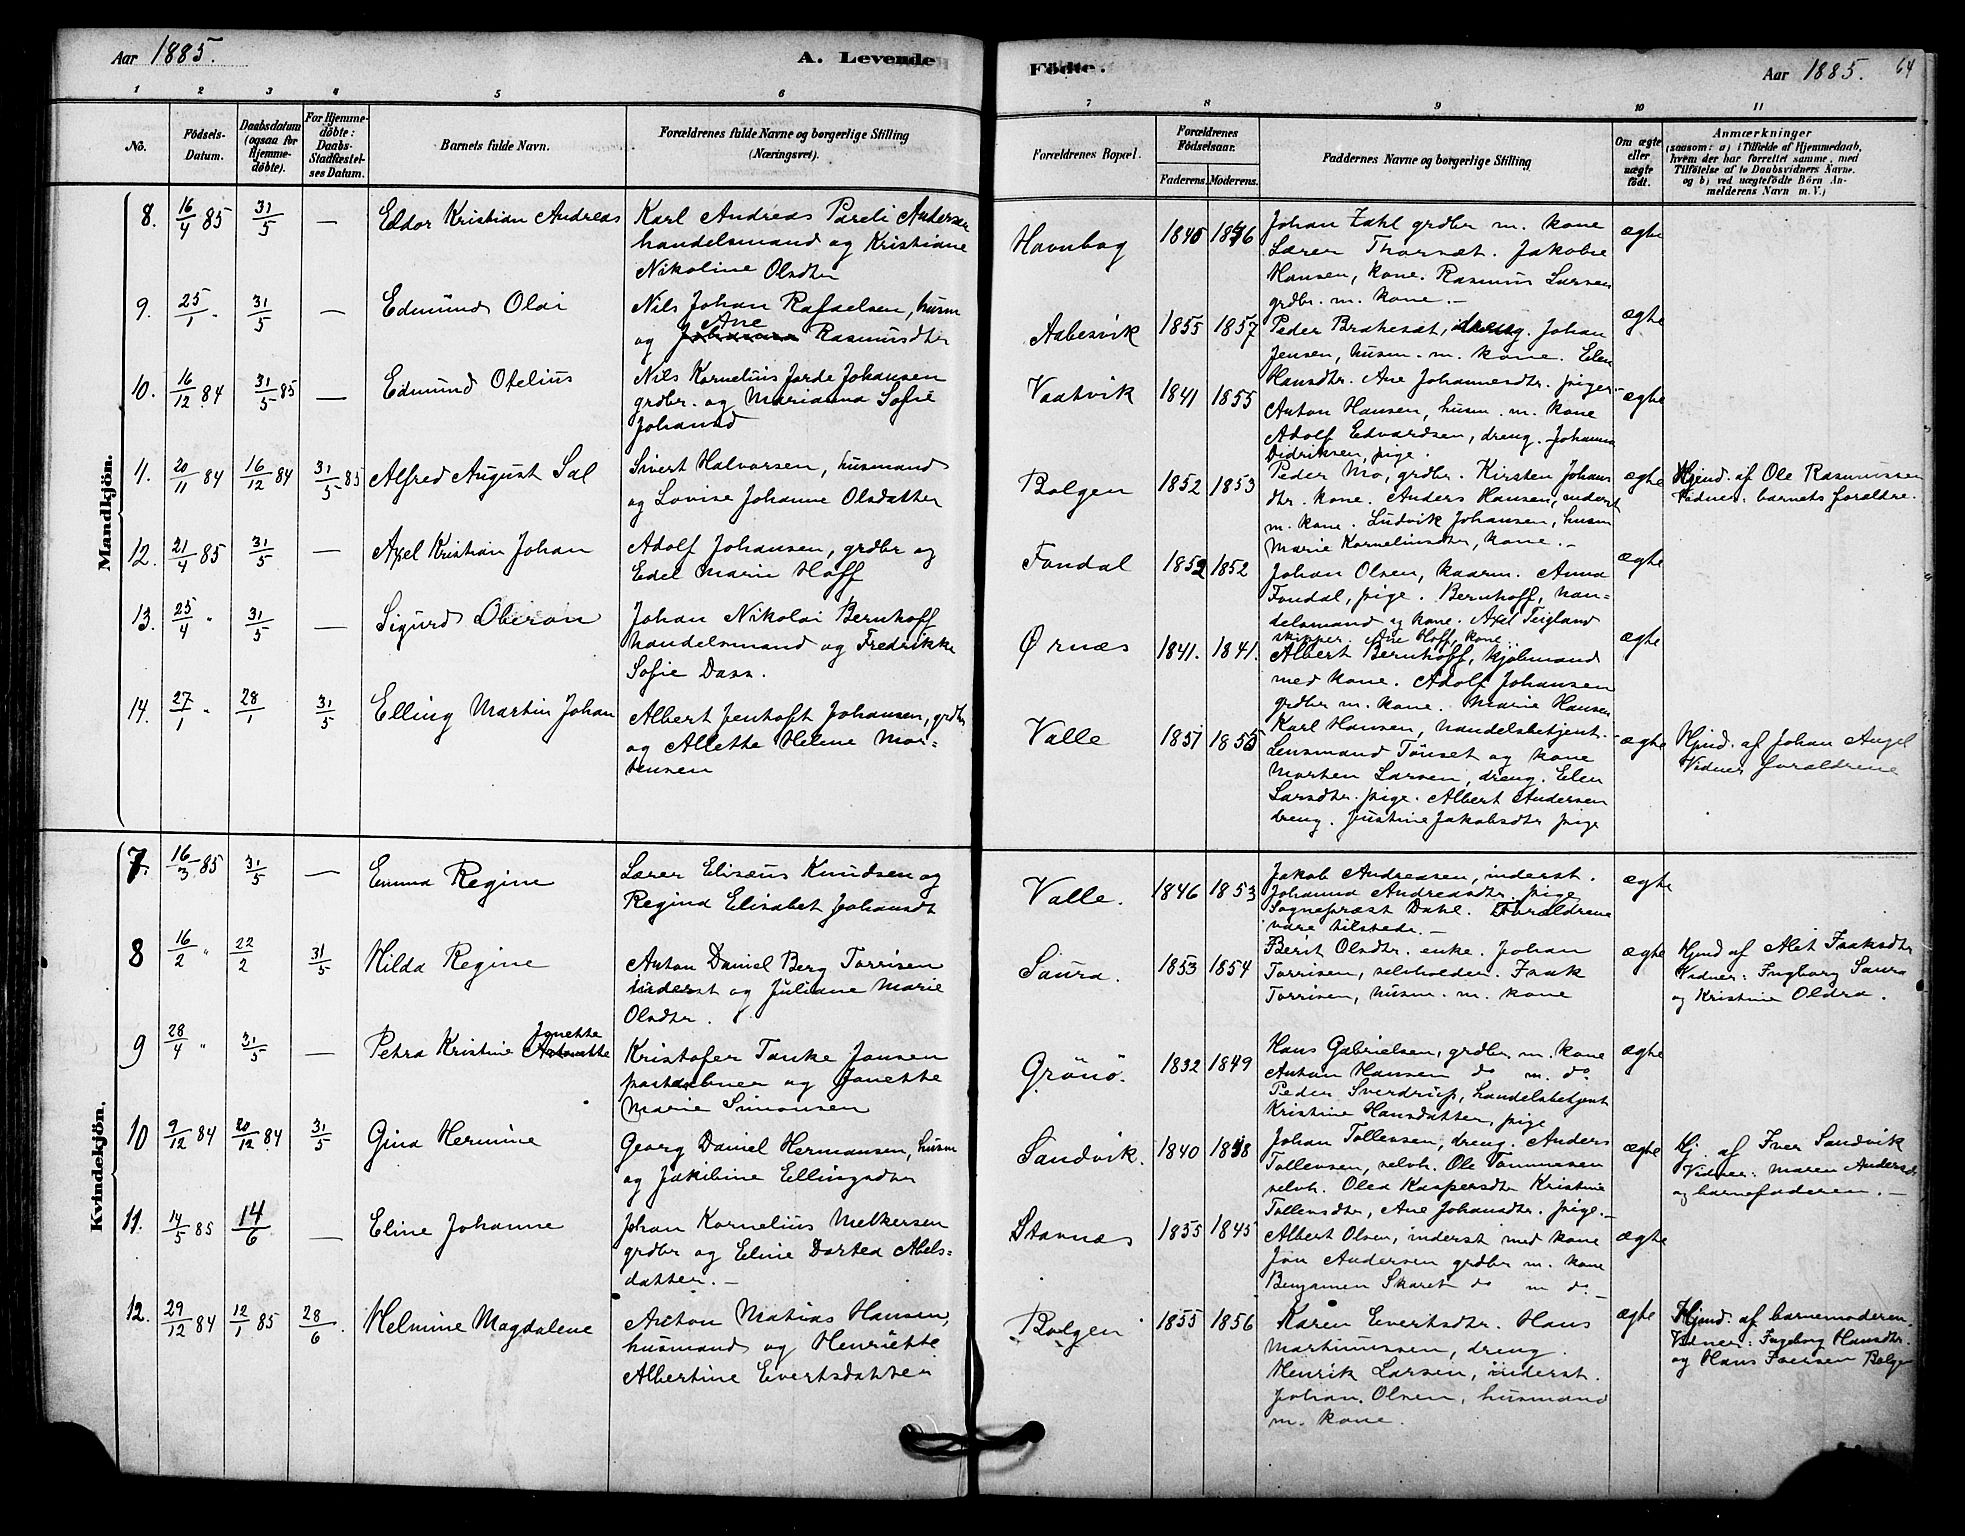 Aar 1885.
A. Levende
1 2 3 4 5 6
No.
Födsels-
Datum.
Daabsdatum
(ogsaa for
Hjemme-
døbte).
For Hjemme-
døbte:
Daabs-
Stadfæstel-
ses Datum.
Barnets fulde Navn.
Forældrenes fulde Navne og borgerlige Stilling
(Næringsvei).
Mandkjön.
8. 16/4 85 31/5 — Eldor Kristian Andreas
Karl Andreas Pareli Andersen
handelsmand og Kristiane
Nikoline Olsdtr
9. 25/1 " 31/5 — Edmund Olai
Nils Johan Rafaelsen, husm
Ane
og Johanna Rasmusdtr
10. 16/12 84 31/5 85 — Edmund Otelius
Nils Kornelius Jorde Johansen
grdbr. og Marianna Sofie
Johansd
11. 20/11 84 16/12 84 31/5 85 Alfred August Sal
Sivert Halvorsen, husmand
og Lovise Johanne Olsdatter
12. 21/4 85 31/5 — Axel Kristian Johan
Adolf Johansen, grdbr og
Edel Marie Hoff
13. 25/4 " 31/5 — Sigurd Oberon
Johan Nikolai Bernhoff
handelsmand og Fredrikke
Sofie Dass.
14. 27/1 " 28/1 31/5 Elling Martin Johan
Albert Jentoft Johansen, grdbr
og Allette Helene Mor=
tensen
Kvindekjön.
7. 16/3 85 31/5 — Emma Regine
Lærer Elisæus Knudsen og
Regina Elisabet Johansdt
8 16/2 " 22/2 31/5 Hilda Regine
Anton Daniel Berg Torrisen
inderst og Juliane Marie
Olsdtr.
9 28/4 " 31/5 — Petra Kristine Antonette
Jonette
Kristofer Tanke Jonsen
postaabner og Jonette
Marie Simonsen
10 9/12 84 20/12 84 31/5 Gina Hermine
Georg Daniel Hermansen, husm
og Jakibine Ellingsdtr
11. 14/5 85 14/6 — Eline Johanne
Johan Kornelius Melkersen
grdbr og Eline Dortea Abels=
datter. —
12. 29/12 84 12/1 85 28/6 . Helmine Magdalene
Anton Matias Hansen,
husmand og Henriette
Albertine Evertsdatter
Födte.
Aar 1885. 64
7 8 9 10 11
Forældrenes Bopæl.
Forældrenes
Födselsaar.
Faderens. Moderens.
Faddernes Navne og borgerlige Stilling
Om ægte
eller
uægte
födt.
Anmærkninger
(saasom: a) i Tilfælde af Hjemmedaab,
hvem der har forrettet samme, med
Tilföielse af to Daabsvidners Navne.
og b) ved uægtefödte Börn An-
melderens Navn m. V.)
Havnbog 1840 1846 ægte
Johan Zahl grdbr m. kone
Larer Thorsæt. Jakobie
Hansen, kone. Rasmus Larsen
grdbr. m. kone. —
Aabesvik 1855 1857 ægte
Peder Brakesæt, dreng. Johan
Jensen, husm. m. kone. Elen
Hansdtr. Ane Johannesdtr. piger
Vaatvik 1841 1855 ægte
Anton Hansen, husm. m. kone
Adolf Edvardsen, dreng. Johanna
Didriksen, pige.
Bolgen 1852 1853 ægte
Peder Mo, grdbr. Kirsten Johans
dtr. kone. Anders Hansen, inderst
m. kone. Ludvik Johansen, husm
Marie Korneliusdtr, kone. —
Hjmd. af Ole Rasmussen
Vidner: barnets forældre.
Fondal 1852 1852 ægte
Johan Olsen, kaarm. Anna
Fondal, pige. Bernhoff, han=
delsmand og kone. Axel Teigland
skipper. Ane Hoff, kone.
Ørnæs 1841. 1841. ægte
Albert Bernhoff, kjöbmand
med kone. Adolf Johansen
grdbr m. kone. Marie Hansen
Valle 1851 1855 ægte
Karl Hansen, handelsbetjent.
Lensmand Tönset og kone
Morten Larsen, dreng. Elen
Larsdtr. pige. Albert Andersen
dreng. Justine Jakobsdtr pige
Hjmd. af Johan Angel
Vidner forældrene
Valle. 1846 1853 ægte
Jakob Andreasen, inderst.
Johanna Andreasdtr. pige
Sogneprest Dahl. Forældrene
vare tilstede. —
Saura. 1853 1854 ægte
Berit Olsdtr. enke. Johan
Torrisen, selveieder. Isak
Torrisen, husm. m. kone
Hjmd af Alet Isaksdtr
Vidner: Ingborg Saura
og Kristine Oldra.
Grönö. 1832 1849 ægte
Hans Gabrielsen, grdbr. m. kone
Anton Hansen do m. do
Peder Sverdrup, handelsbetjent
Kristine Hansdatter, pige
Sandvik. 1840 1838 ægte
Johan Tollevsen, dreng. Anders
Tollevsen, selvh. Ole Tommesen
selvh. Olea Kaspersdtr Kristine
Tollevsdtr, Ane Johansdtr. pige. —
Hj. af Iver Sandvik
Vidner: Maren Andersd.
og barnefaderen. —
Stavnæs 1855 1845 ægte
Albert Olsen, inderst med kone
Jon Andersen grdbr m. kone
Benjamen Skaret do m do —
Bolgen 1855 1856 ægte
Karen Evertsdtr. Hans
Martinussen, dreng.
Henrik Larsen, inderst.
Johan Olsen, husmand
m. kone.
Hjmd. af barnemoderen.
Vidner: Ingeborg Hansdtr.
og Hans Iversen Bolgen